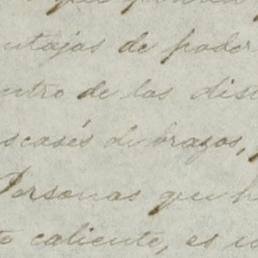 ntajas de poder
ntro de los dis
scasés de brazos,
Personas que h
o caliente, es u